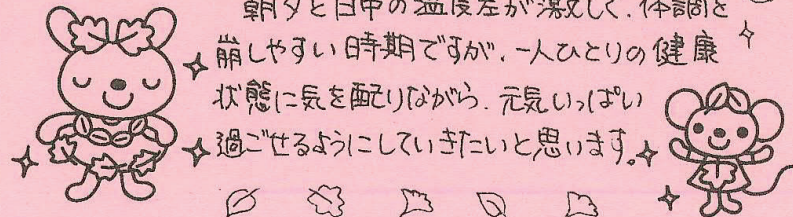 朝夕と日中の温度差が激しく、体調を
崩しやすい時期ですが、一人ひとりの健康
状態に気を配りながら、元気いっぱい
過ごせるようにしていきたいと思います。